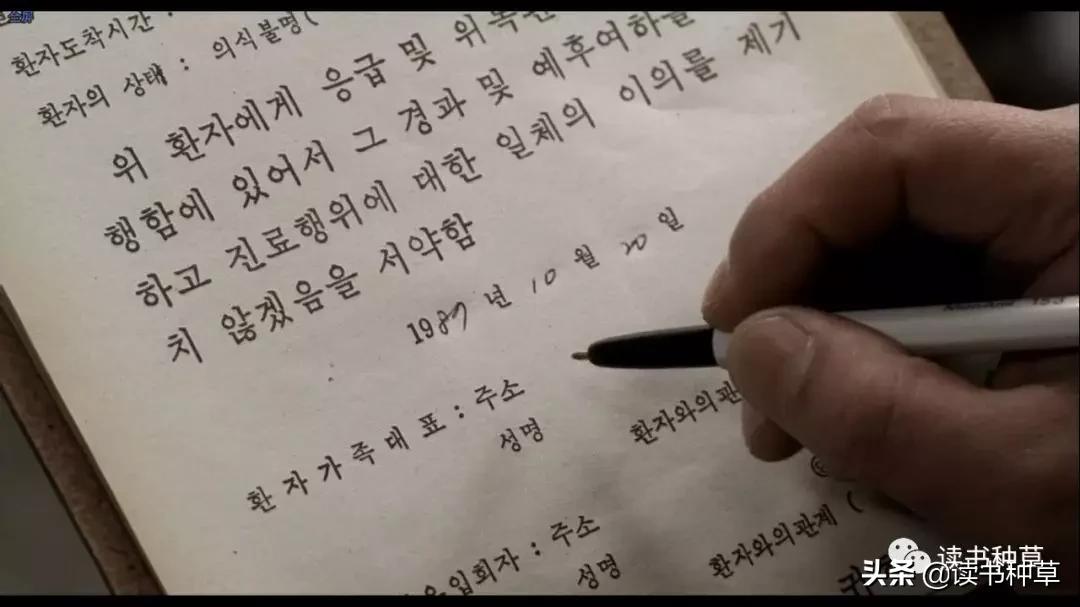 환자도착시간 :
환자의 상태 : 의식불명 (
위 환자에게 응급 및
행함에 있어서 그 경과 및 예후여하를
하고 진료행위에 대한 일체의 이의를 제기
치 않겠음을 서약함
1987 년 10 월 20 일
환자가족대표 : 주소
성명 환자와의관
입회자 : 주소
성명 환자와의관계 (
读书种草
头条 @读书种草